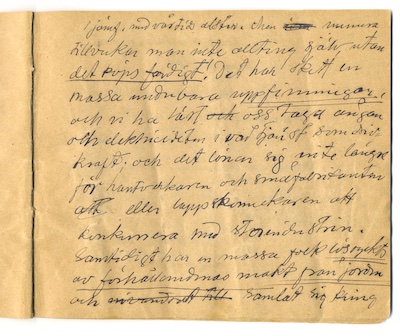 i jäms med värdit alster. Men numera
tillverkar man inte allting själv utan
det köps färdigt. Det har skett en
massa underbara uppfinningar,
och vi ha lärt och oss taga ångan
och elektriciteten i vår tjänst som driv
kraft, och det lönar sig inte längre
för hantverkaren och småfabrikanten
att eller uppskinnckaren att
konkurrera med storindustrin.
Samtidigt har en massa folk lösryckts
av förhållandenas makt från jorden
och samlat sig kring